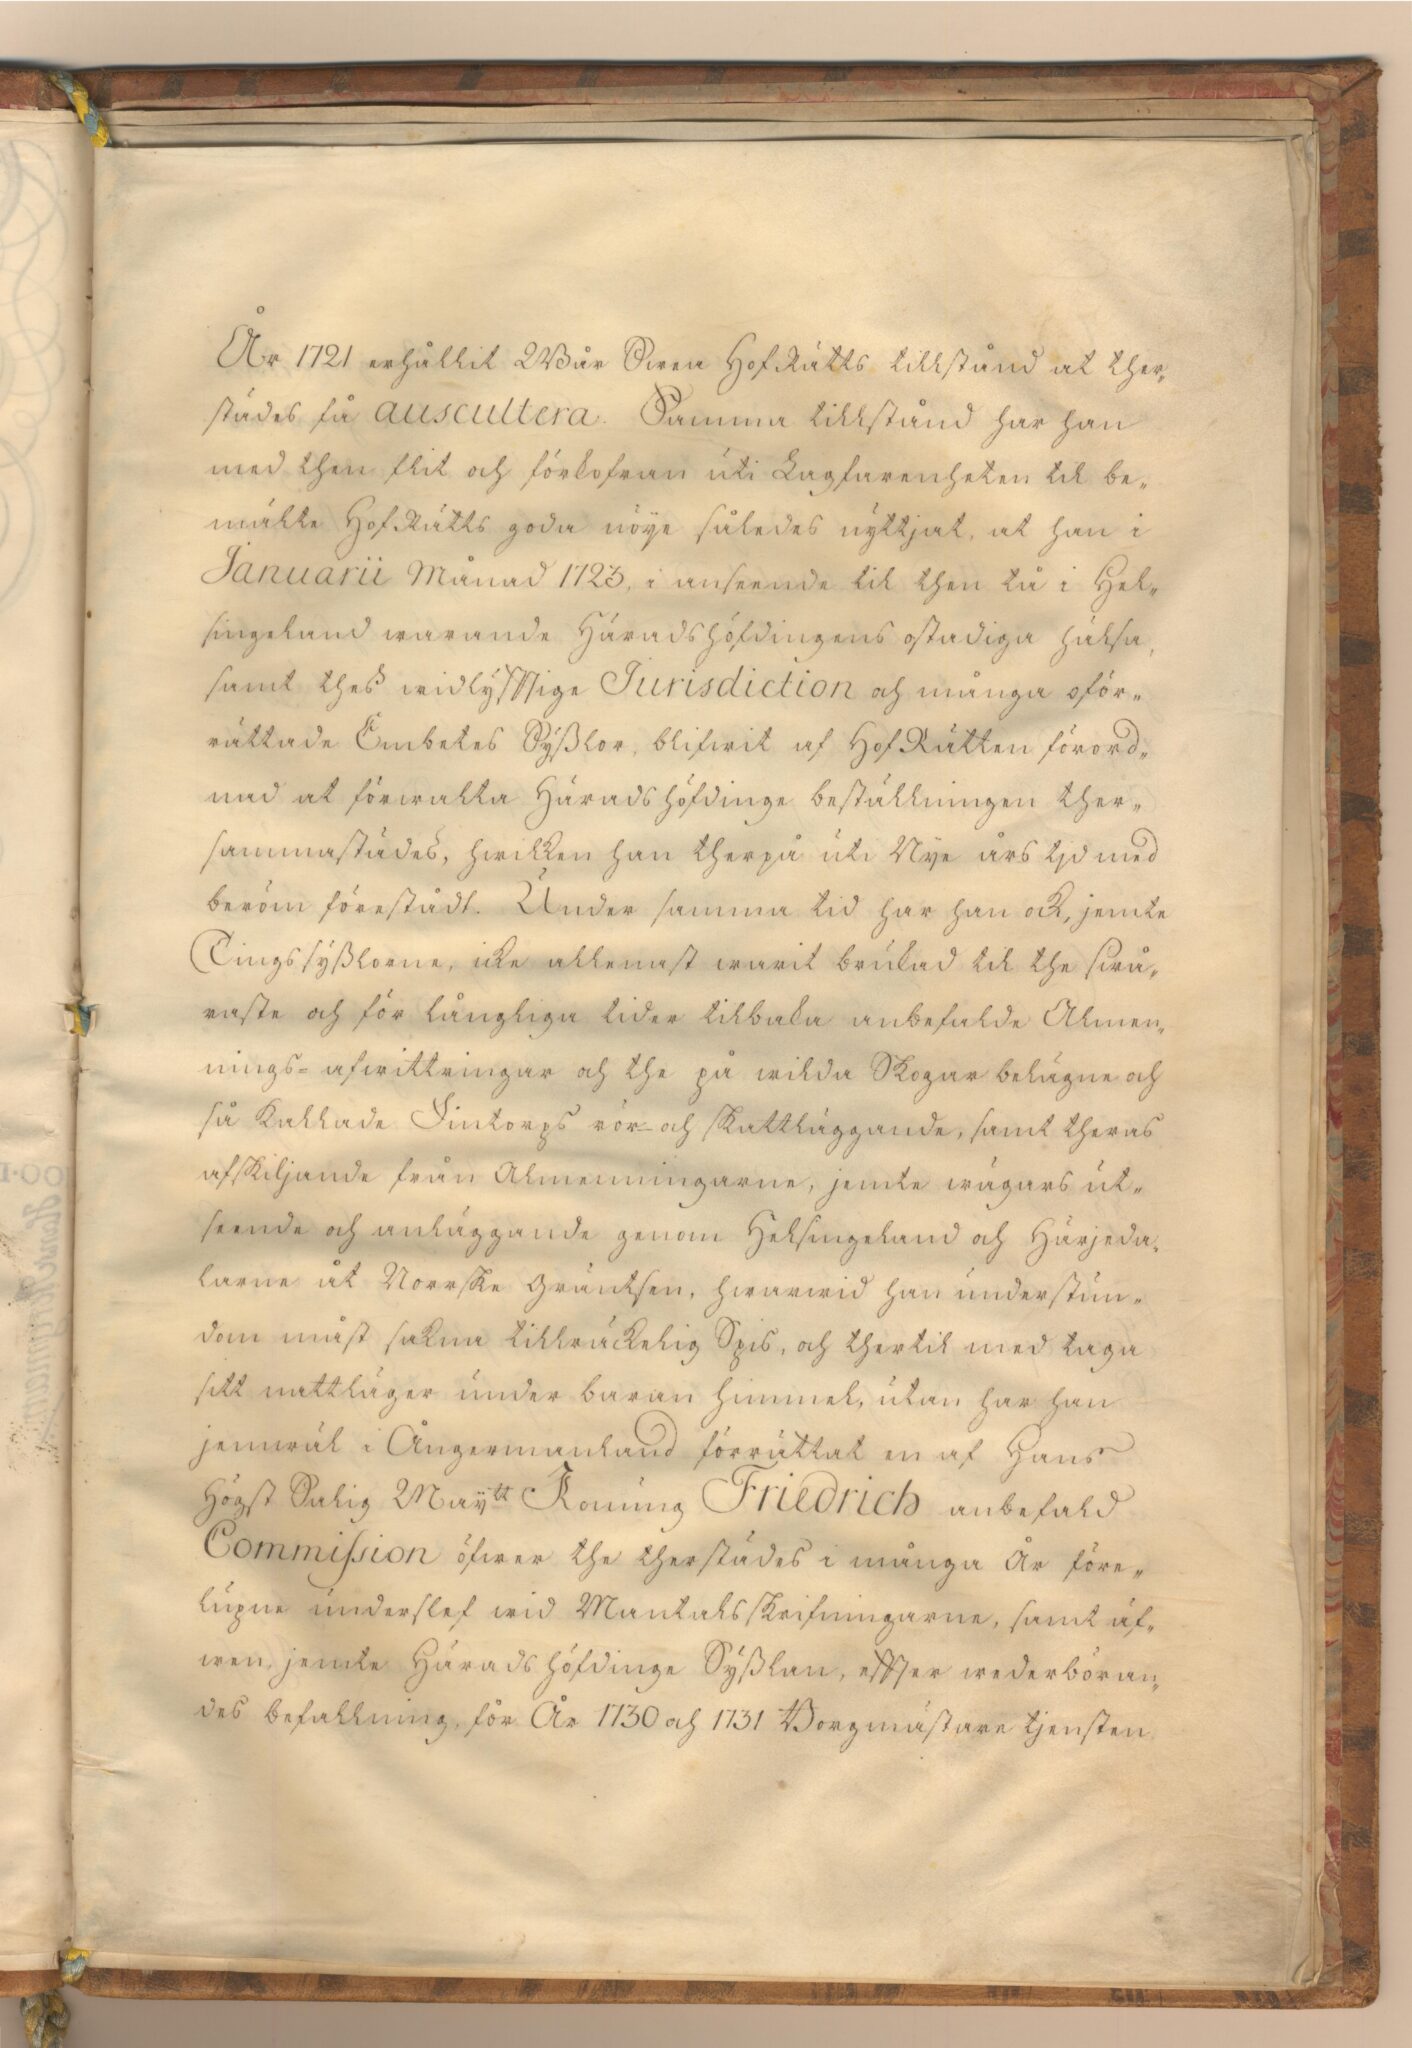 År 1721 erhållit Wår Swea HofRätts tillstånd at ther„
städes få auscultera. Samma tillstånd har han
med then flit och förkofran uti Lagfarenheten til be„
mälte HofRätts goda nöye således nyttjat, at han i
Januarii Månad 1723, i anseende til then tå i Hel„
singeland warande Häradshöfdingens ostadiga hälsa,
samt thes widlyfftige Jurisdiction och många oför„
rättade Embetes Syßlor, blifwit af HofRätten förord„
nad at förwalta Häradshöfdinge beställningen ther„
sammastädes, hwilken han therpå uti Nye års tjd med
beröm förestådt. Under samma tid har han ock, jemte
Tingssyßlorne, icke allenast warit brukad til the swå„
raste och för långliga tider tilbaka anbefalde Almen„
nings= afwittringar och the på wilda Skogar belägne och
så kallade Fintorps rör- och skattläggande, samt theras
afskiljande från Almenningarne, jemte wägars ut„
seende och anläggande genom Helsingeland och Härjeda„
larne åt Norrske Gräntsen, hwarwid han understun„
dom måst sakna tillräckelig Spis, och thertil med taga
sitt nattläger under baran himmel, utan har han
jemwäl i Ångermanland förrättat en af Hans
Högst Salig Maytt Konung Friedrich anbefald
Commission öfwer the therstädes i många År före„
lupne underslef wid Mantalsskrifningarne, samt äf„
wen, jemte Häradshöfdinge Syßlan, effter wederböran„
des befallning, för År 1730 och 1731 Borgmästare tjensten